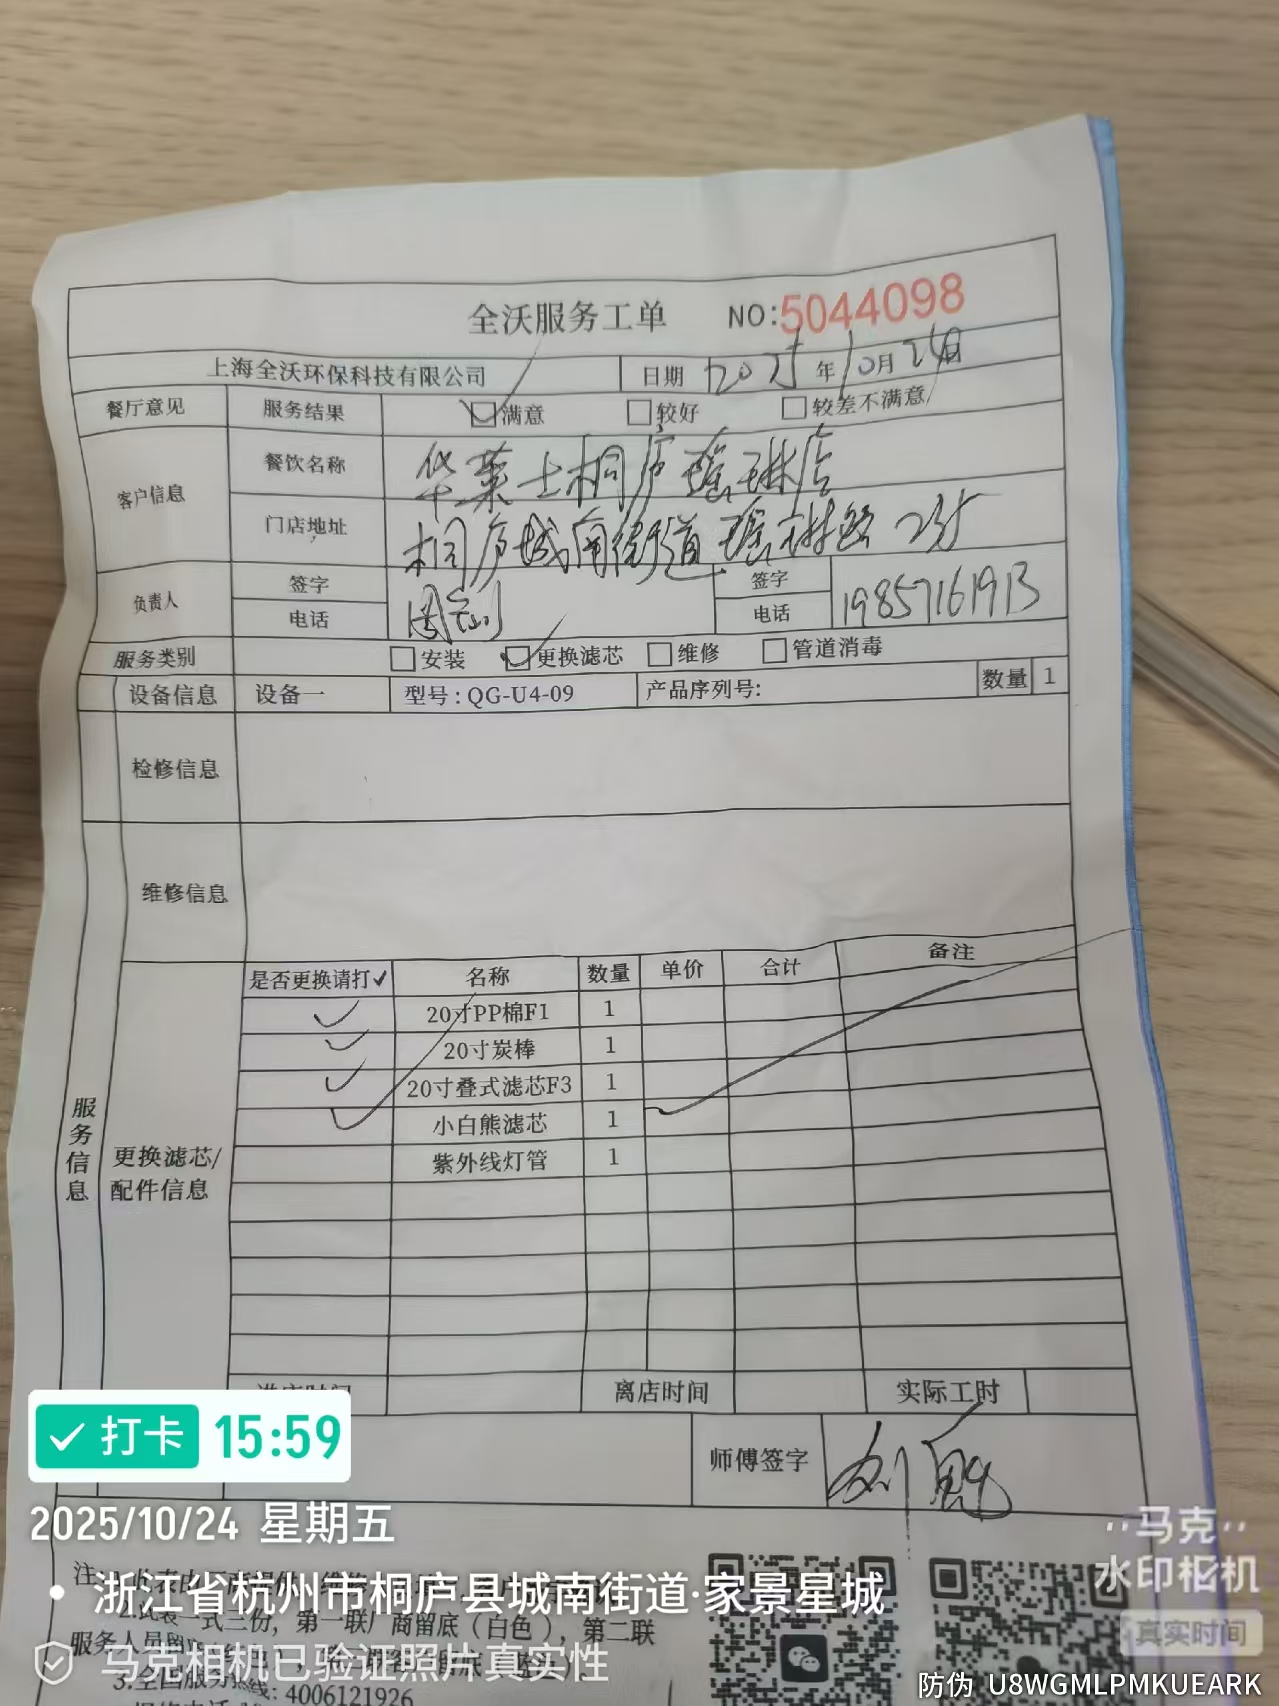 全沃服务工单 NO:5044098
上海全沃环保科技有限公司 日期 2025年10月24日
餐厅意见 服务结果 满意 较好 较差不满意
客户信息 餐饮名称 华莱士桐庐瑶琳店
门店地址 桐庐城南街道瑶琳路
负责人 签字 电话 签字 电话 19857161913
服务类别 安装 更换滤芯 维修 管道消毒
设备信息 设备一 型号:QG-U4-09 产品序列号: 数量 1
检修信息
维修信息
服务信息
更换滤芯/配件信息
是否更换请打✓ 名称 数量 单价 合计 备注
✓ 20寸PP棉F1 1
✓ 20寸炭棒 1
✓ 20寸叠式滤芯F3 1
✓ 小白熊滤芯 1 ✓
紫外线灯管 1
离店时间 实际工时
师傅签字
打卡 15:59
2025/10/24 星期五
浙江省杭州市桐庐县城南街道·家景星城
2.此表一式三份,第一联厂商留底(白色),第二联
服务人员
马克相机已验证照片真实性
3.全国服务热线:4006121926
马克
水印相机
真实时间
防伪 U8WGMLPMKUEARK